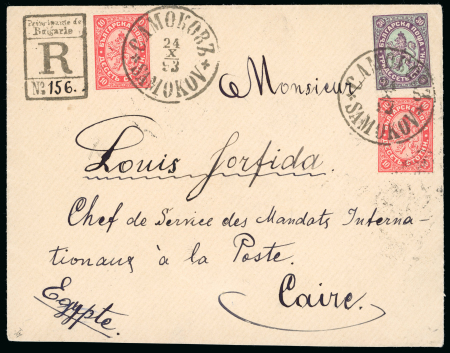 Principauté de
Bulgarie
R
№ 156.
САМОКОВЪ
24
X
93
SAMOKOV
БЪЛГАРСКА ПОЩА
10 ДЕСЕТЬ 10
БЪЛГАРСКА ПОЩА
SAMOKOV
10
Monsieur
Louis Jorfida.
Chef de Service des Mandats Interna-
tionaux à la Poste.
Caire.
Egypte.